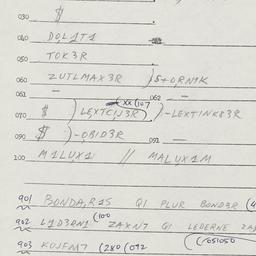 030 $
040 DO,1T1
050 TOK3R
060 ZUTLMAX3R )S+O,RN1K
061 — 062 —
070 $ )LEXTC,J3R (XX(107 )-LEXTINK83R
090 $ )-OBID3R 091 —
100 M1LUX1 // MALUX1M
901 BONDA,R1S Q1 PLUR BOND3R (4
902 L1D3RN1 (100 ZAXN7 Q1 LEDERNE ZA
903 KOJFM7 (280 (072 (051050